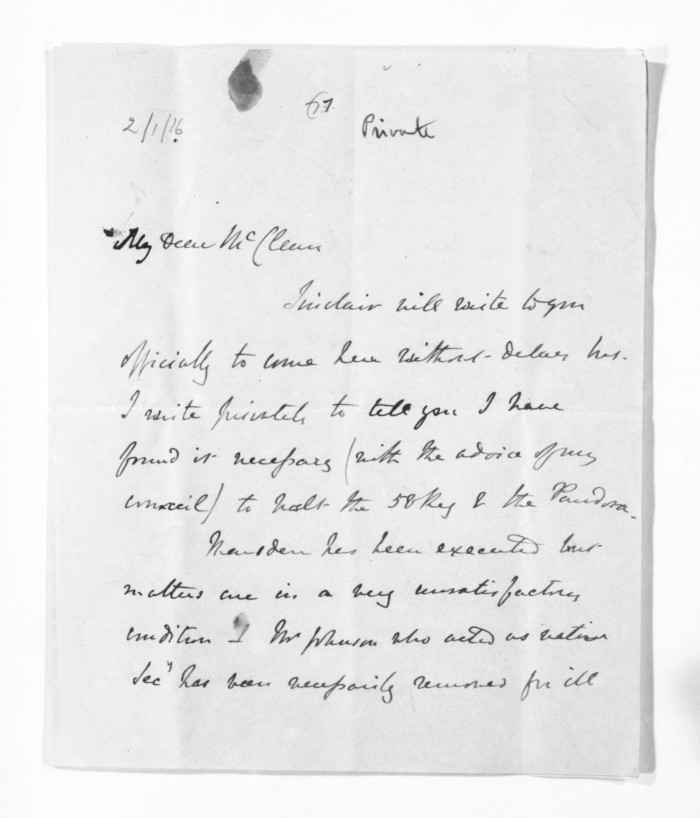 2/1/76
67.
Private
My Dear McClean
Sinclair will write to you
officially to come here without delay but
I write privately to tell you I have
found it necessary (with the advice of my
council) to halt the 58 Reg & the Pandora
has been executed but
matters are in a very unsatisfactory
condition Mr Johnson who acted as native
Secy has been necessarily removed for ill